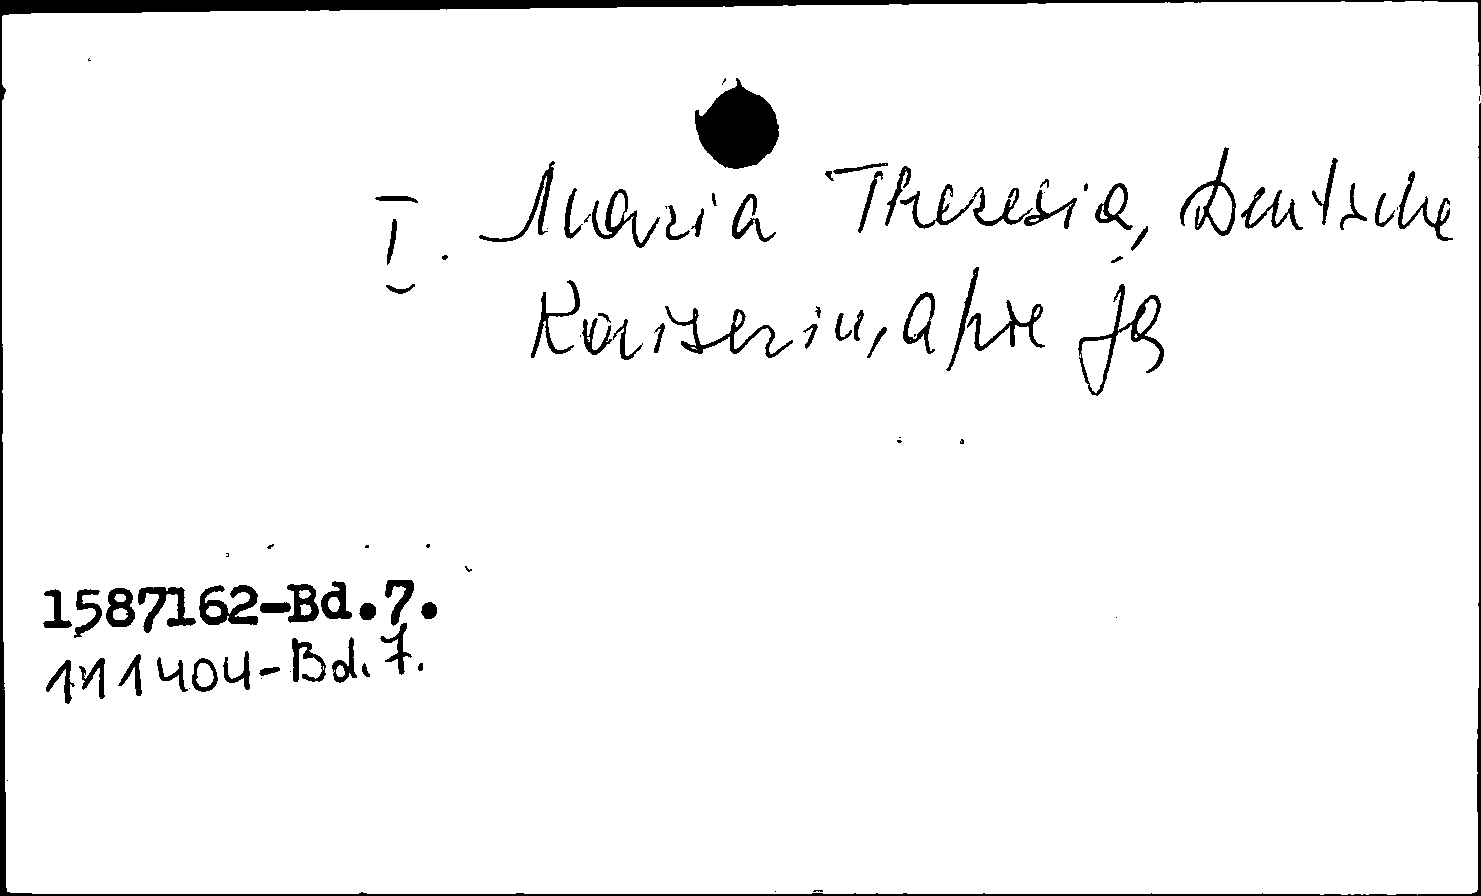 I. Maria Theresia, Deutsche
Kaiserin, apie ją
1587162-Bd.7.
111404-Bd.7.